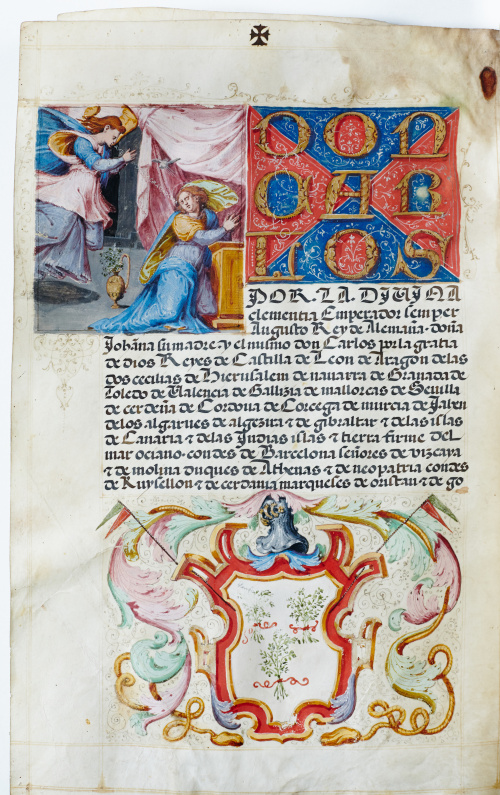 DON
CAR
LOS
POR·LA·DIVINA
clementia Emperador semper
Augusto Rey de Alemaña· doña
Johãna su madre· y el mismo don Carlos por la gratia
de dios Reyes de Castilla de Leon de Aragon de las
dos cecilias de Hierusalem de nauarra de Granada de
Toledo de Valencia de Gallizia de mallorcas de Seuilla
de cerdeña de Cordoua de Corcega de murcia de Jahen
de los algarues de algezira τ de gibraltar τ de las islas
de Canaria τ de las Indias islas τ tierra firme del
mar oceano· condes de Barcelona señores de vizcaya
τ de molina duques de Athenas τ de neopatria condes
de Ruysellon τ de cerdania marqueses de oristan τ de go